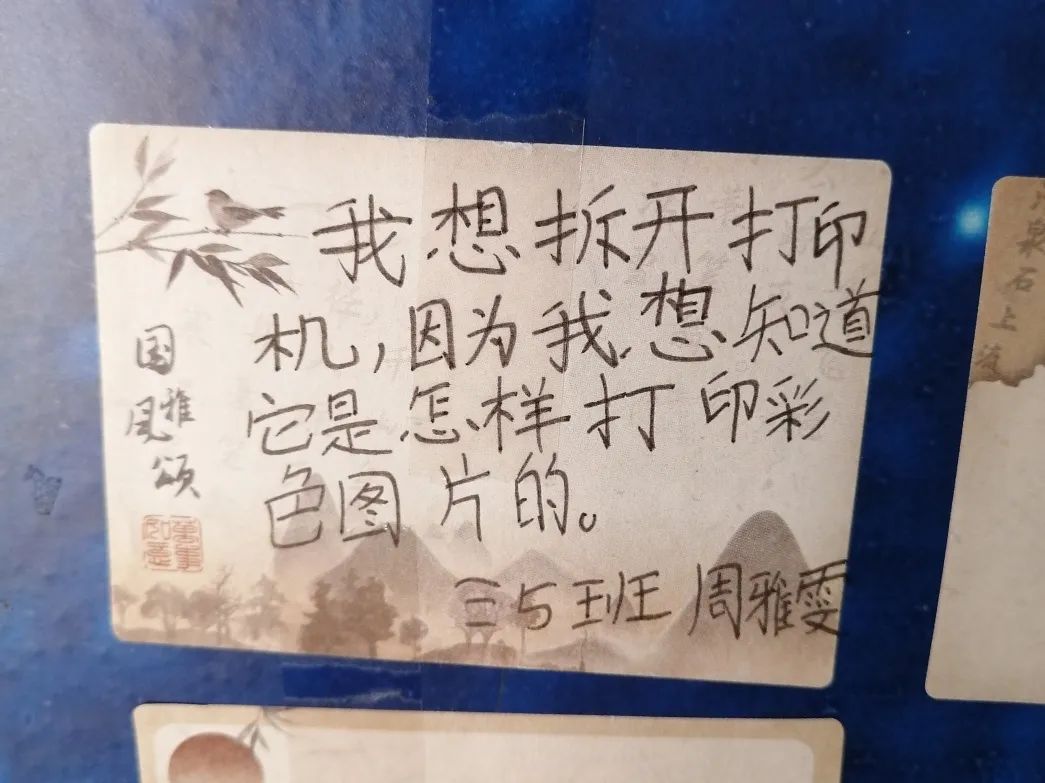 我想拆开打印
机,因为我想知道
它是怎样打印彩
色图片的。
三5班 周雅雯
国
风雅
颂
泉石上